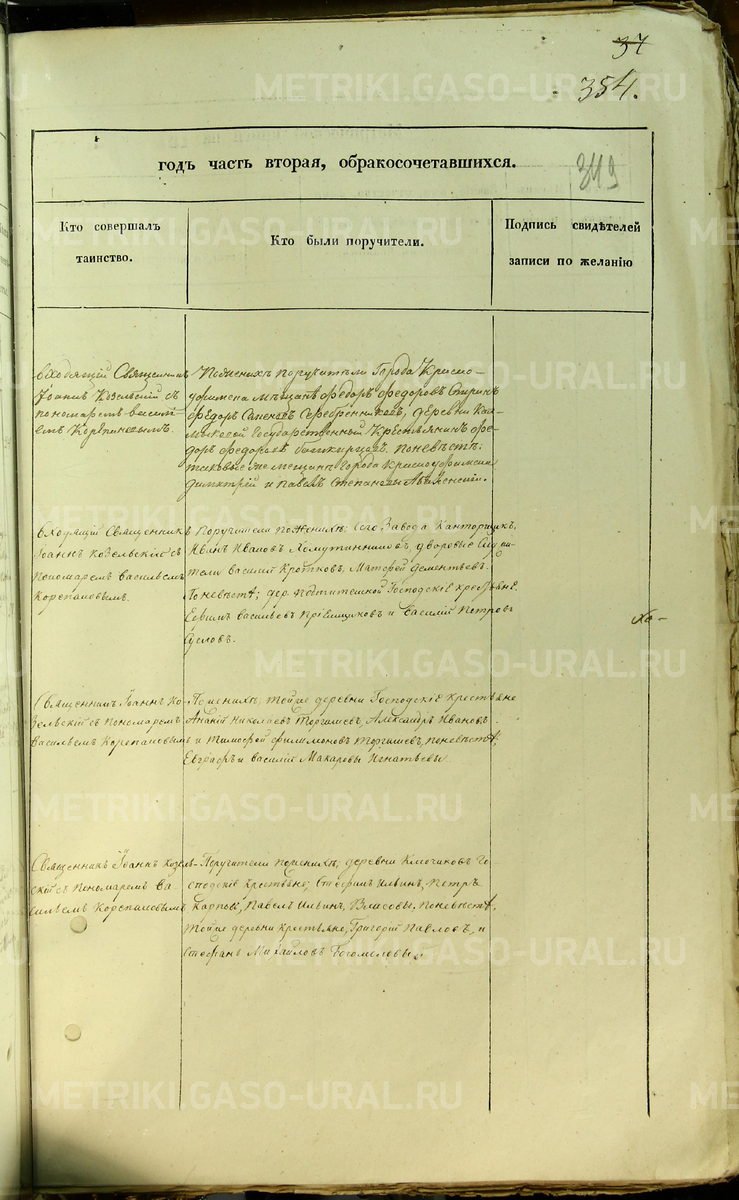 37
354.
годъ часть вторая, обракосочетавшихся.
349
Кто совершалъ
таинство.
Кто были поручители.
Подпись свидѣтелей
записи по желанію
входящій Священникъ
Іоаннъ Козельскій съ
пономаремъ васил
емъ Корепановымъ.
Поженихъ поручители Города Красно
уфимска мѣщане федоръ федоровъ
федоръ Серебренниковъ, деревни
Государственный Крестьянинъ фе
доръ федоровъ башкирцевъ. Поневѣстѣ:
таковые же мещане Города Красноуфимска
Димитрій и Павелъ Степановы
входящій Священникъ
Іоаннъ козельскій съ
Пономаремъ васильемъ
Корепановымъ.
Поручители поженихѣ; Завода Канторщикъ
Иванъ Ивановъ Хомутинниковъ, дворовые
василій Кротковъ, Матфей дементьевъ.
Поневѣстѣ; дер. Господскіе крестьяне
Ефимъ васильевъ и василій Петровъ
Сусловъ.
Хо-
Священникъ Іоаннъ Ко
зельскій съ пономаремъ
васильемъ Корепановымъ
Поженихѣ; тойже деревни Господскіе крестьяне
Ананій Николаевъ Торгашевъ, Александръ Ивановъ
и Тимофей филимоновъ Торгашевъ, поневѣстѣ;
Евграфъ и василій Макаровы Игнатьевы.
Священникъ Іоаннъ козель
скій съ Пономаремъ ва
сильемъ Корепановымъ
Поручители поженихѣ; деревни Ключиковъ Го
сподскіе крестьяне; Стефанъ Ильинъ, Петръ
Карповъ, Павелъ Ильинъ, Власовы, поневѣстѣ,
тойже деревни крестьяне, Григорій Павловъ, и
Стефанъ Михайловъ Богомоловы.
METRIKI.GASO-URAL.RU